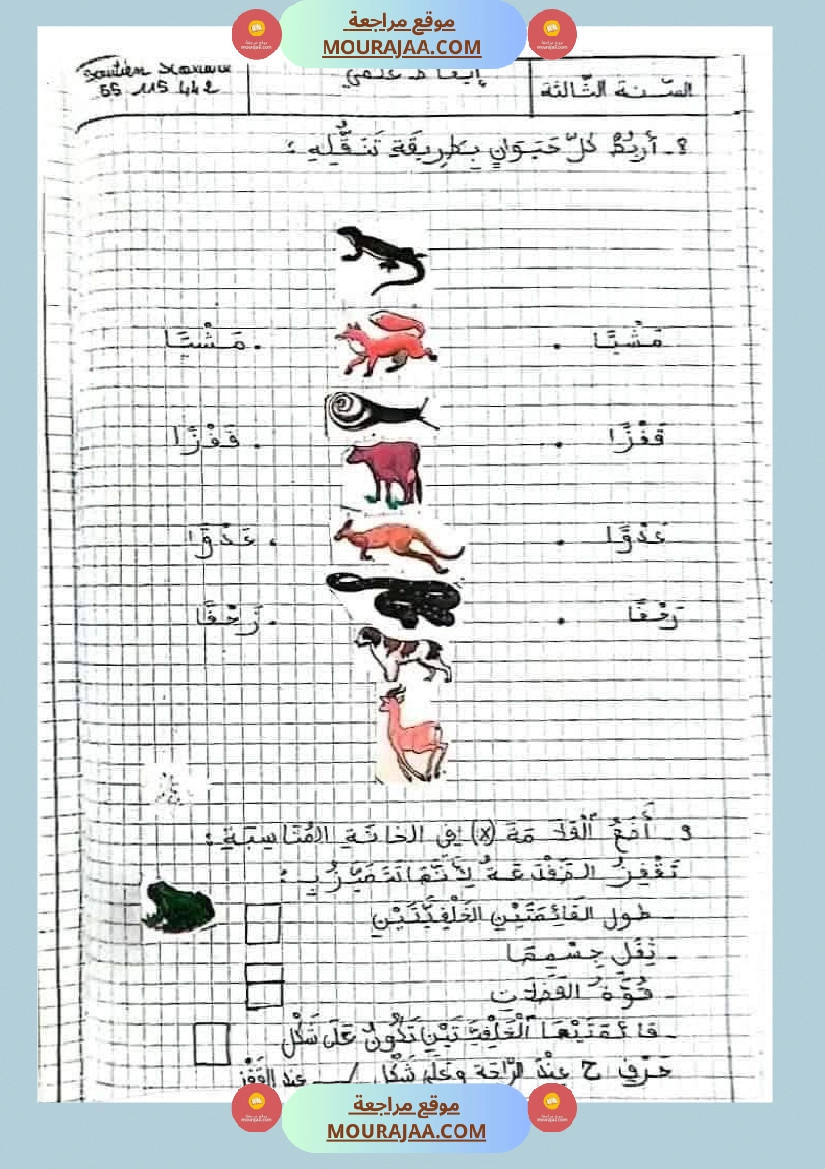 موقع مراجعة
MOURAJAA.COM
السّنة الثّالثة
إيقاظ علمي
55 115 442
8 - أَرْبِطُ كُلَّ حَيَوَانٍ بِطَرِيقَةِ تَنَقُّلِهِ :
مَشْيًا . . مَشْيًا
قَفْزًا . . قَفْزًا
عَدْوًا . . عَدْوًا
زَحْفًا . . زَحْفًا
9 - أَضَعُ الْعَلَامَةَ (x) فِي الخانَةِ المُنَاسِبَةِ :
تَقْفِزُ الضِّفْدَعَةُ لِأَنَّهَا تَتَمَيَّزُ بِ :
- طول القَائِمَتَيْنِ الخَلْفِيَّتَيْنِ
- ثِقَلِ جِسْمِهَا
- قُوَّةُ العَضَلَات
- قائمَتَيْهَا الْخَلْفِيَّتَيْنِ تَكُونُ عَلَى شَكْل
حَرْفِ ح عِنْدَ الرَّاحَة وَعَلَى شَكْل / عند القَفْز
موقع مراجعة
MOURAJAA.COM